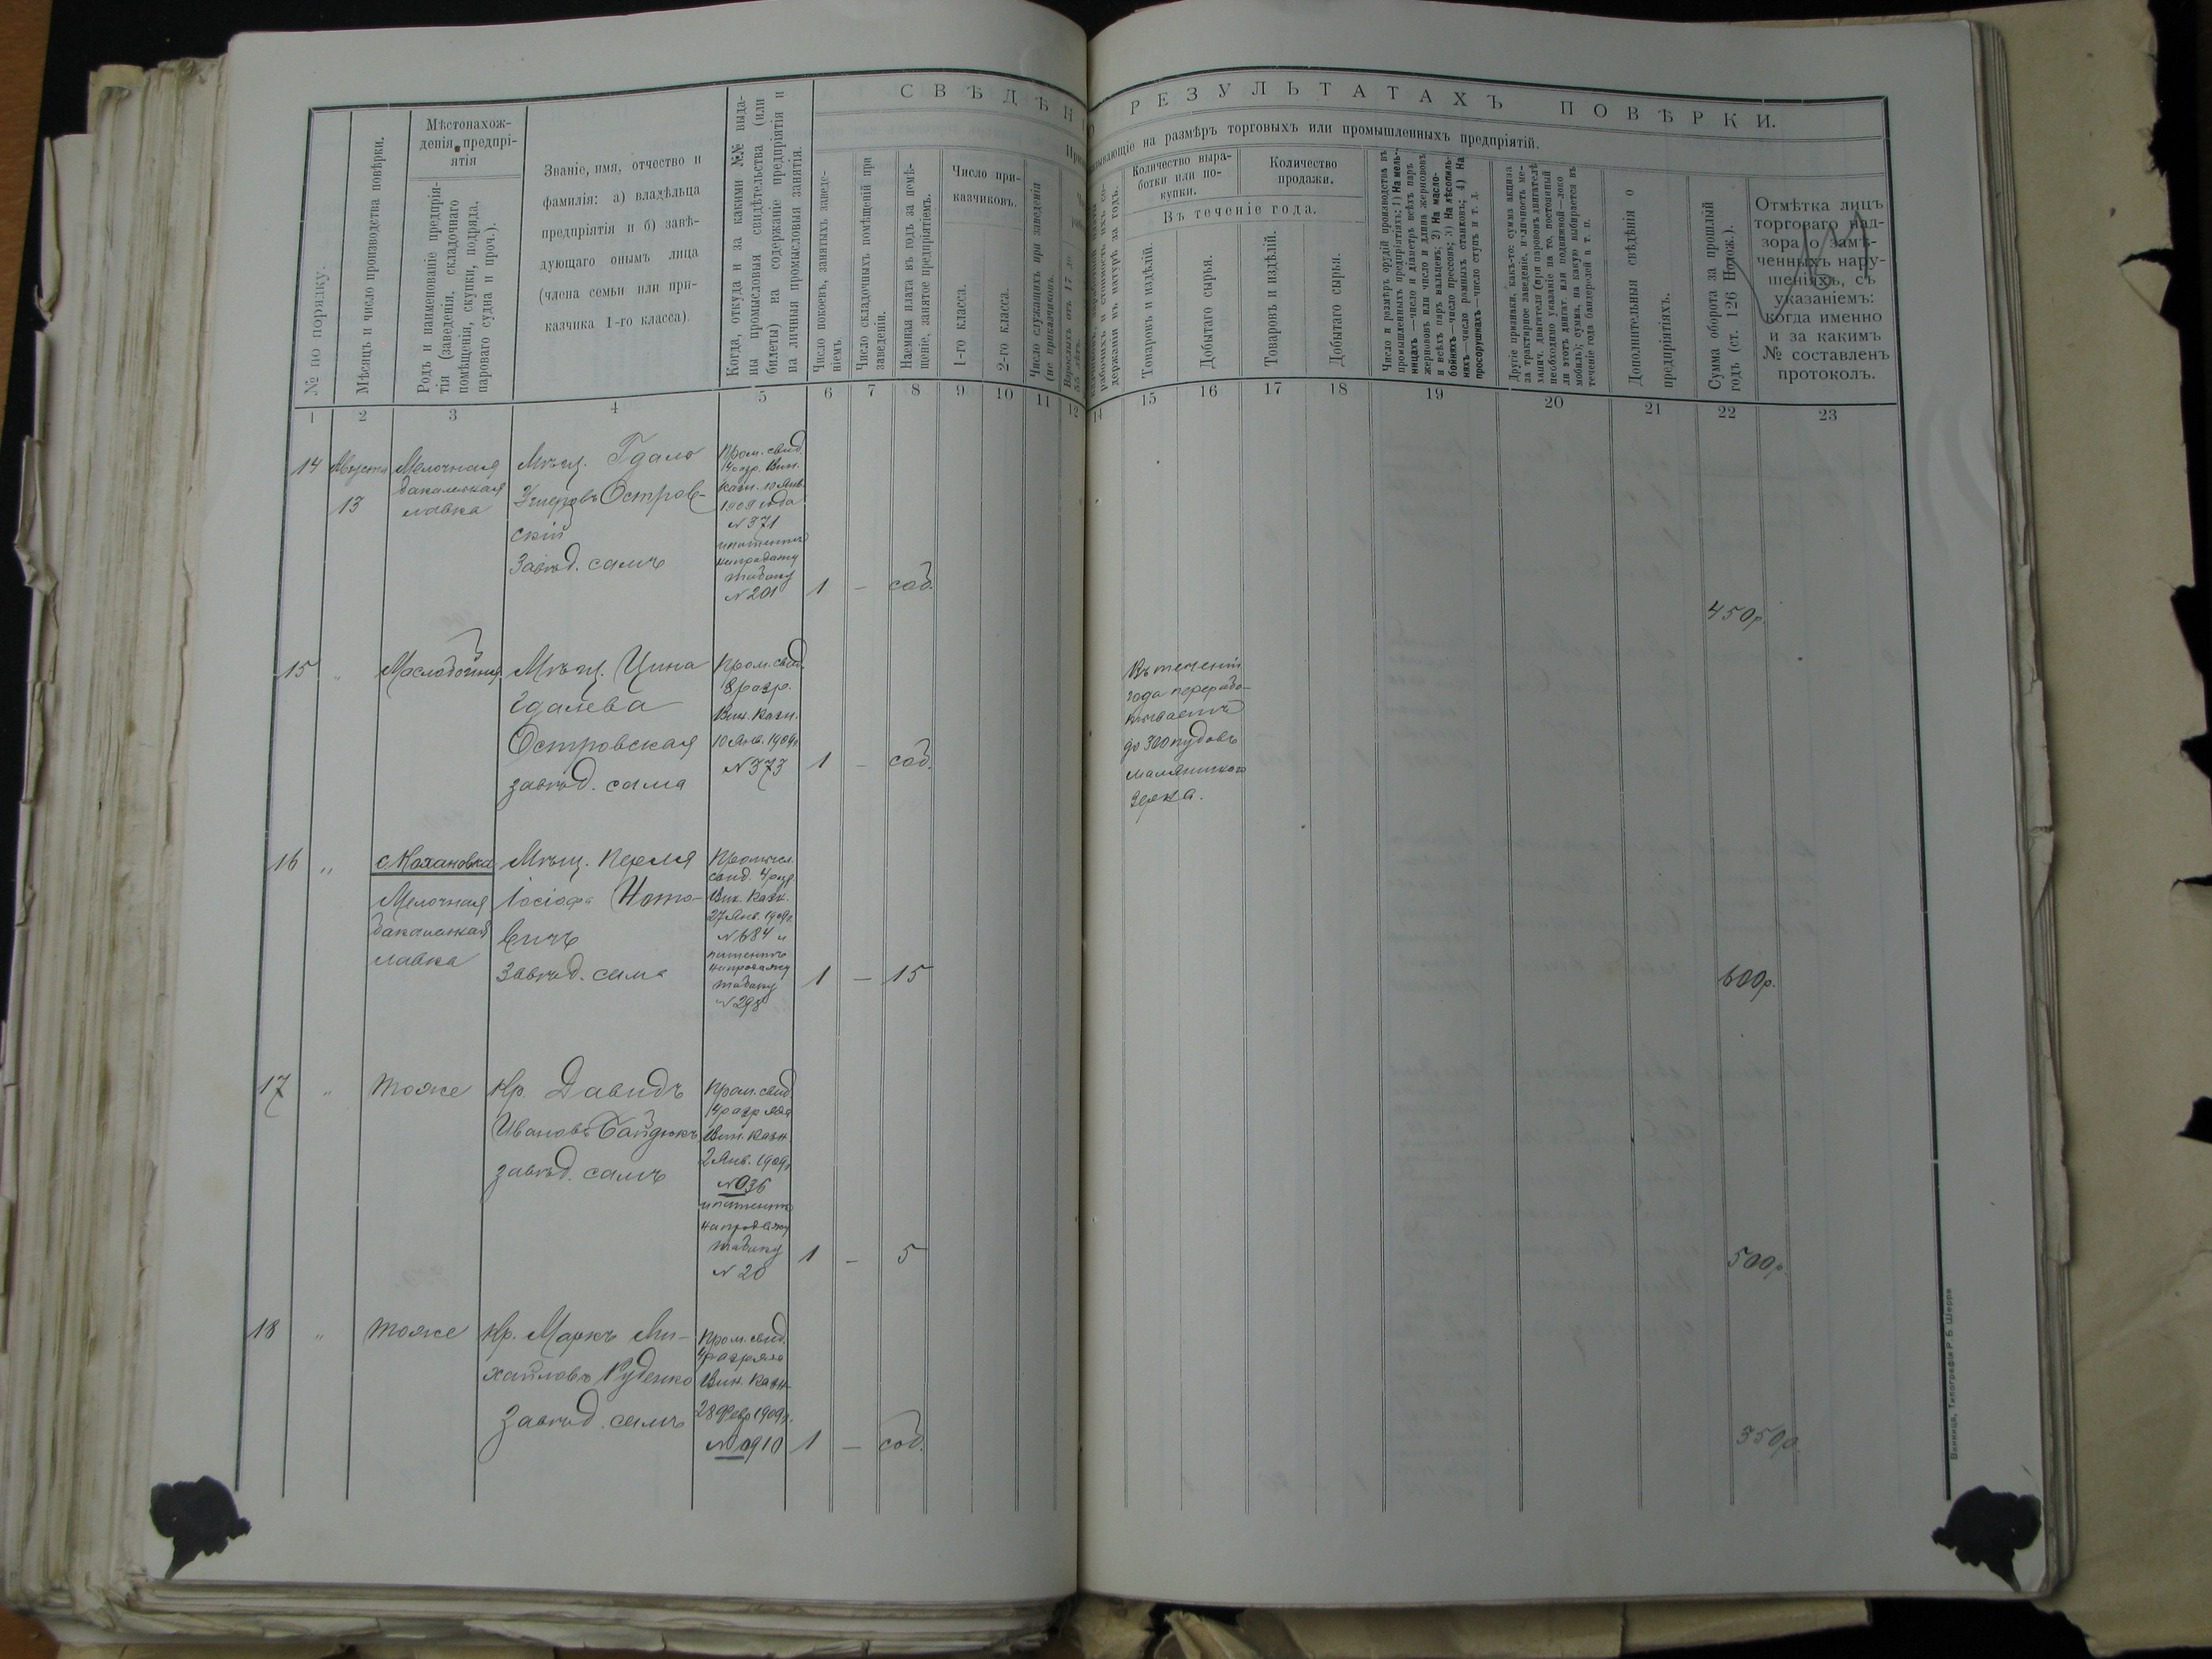 СВѢДѢН
О РЕЗУЛЬТАТАХЪ ПОВѢРКИ.
Призн
зывающіе на размѣръ торговыхъ или промышленныхъ предпріятій.
№ по порядку.
Мѣсяцъ и число производства повѣрки.
Мѣстонахож-
денія предпрі-
ятія
Родъ и наименованіе предпрія-
тія (заведенія, складочнаго
помѣщенія, скупки, подряда,
пароваго судна и проч.).
Званіе, имя, отчество и
фамилія: а) владѣльца
предпріятія и б) завѣ-
дующаго онымъ лица
(члена семьи или при-
казчика 1-го класса).
Когда, откуда и за какими №№ выда-
ны промысловыя свидѣтельства (или
билеты) на содержаніе предпріятія и
на личныя промысловыя занятія.
Число покоевъ, занятыхъ заведе-
ніемъ.
Число складочныхъ помѣщеній при
заведеніи.
Наемная плата въ годъ за помѣ-
щеніе, занятое предпріятіемъ.
Число при-
казчиковъ.
1-го класса.
2-го класса.
Число служащихъ при заведеніи
(не приказчиковъ).
Взрослыхъ отъ 17 до
55 лѣтъ.
рабочихъ и стоимость ихъ со-
держанія въ натурѣ за годъ.
Количество выра-
ботки или по-
купки.
Количество
продажи.
Въ теченіе года.
Товаровъ и издѣлій.
Добытаго сырья.
Товаровъ и издѣлій.
Добытаго сырья.
Число и размѣръ орудій производства въ
промышленныхъ предпріятіяхъ: 1) На мель-
ницахъ—число и діаметръ всѣхъ паръ
жернововъ или число и длина жернововъ
и всѣхъ паръ вальцевъ; 2) На масло-
бойняхъ—число прессовъ; 3) На лѣсопиль-
няхъ—число рамныхъ станковъ; 4) На
просорушкахъ—число ступъ и т. д.
Другіе признаки, какъ-то: сумма акциза
за трактирное заведеніе, наличность ме-
ханич. двигателя (при паровомъ двигателѣ
необходимо указаніе на то, постоянный
ли этотъ двигат. или подвижной—локо
мобиль); сумма, на какую выбирается въ
теченіе года бандеролей и т. п.
Дополнительныя свѣдѣнія о
предпріятіяхъ.
Сумма оборота за прошлый
годъ (ст. 126 Полож.).
Отмѣтка лицъ
торговаго над-
зора о замѣ-
ченныхъ нару-
шеніяхъ, съ
указаніемъ:
когда именно
и за какимъ
№ составленъ
протоколъ.
1 2 3 4 5 6 7 8 9 10 11 12 14 15 16 17 18 19 20 21 22 23
14 Августа
13
Мелочная
бакалейная
лавка
Мѣщ. Гдаль
Островскій
Завѣд. самъ
Пром. свид.
4 разр. Вин.
Казн. 10 Янв.
1909 года
№ 371
и патентъ
на продажу
табаку
№ 201
1 — соб.
450р.
15 „ Маслобойня
Мѣщ. Цина
Гдалева
Островская
завѣд. сама
Пром. свид.
8 разр.
Вин. Казн.
10 Янв. 1909г.
№ 373
1 — соб.
Въ теченіи
года перераба-
тываетъ
до 300 пудовъ
масляничнаго
зерна.
16 „ с. Кохановка
Мелочная
бакалейная
лавка
Мѣщ. Перля
Іосіофа Ното-
вичъ
Завѣд. сама
Промысл.
свид. 4 разр.
Вин. Казн.
27 Янв. 1909г.
№ 684 и
патентъ
на продажу
табаку
№ 298
1 — 15
600р.
17 „ Тоже
Кр. Давидъ
Ивановъ Байдюкъ
завѣд. самъ
Пром. свид.
4 разряда
Вин. Казн.
2 Янв. 1909г.
№ 036
и патентъ
на продажу
табаку
№ 20
1 — 5
500р.
18 „ Тоже
Кр. Маркъ Ми-
хайловъ Руденко
Завѣд. самъ
Пром. свид.
4 разряда
Вин. Казн.
28 Февр 1909г.
№ 0910
1 — соб.
350р.
Винница, Типографія Р. Б. Шерра